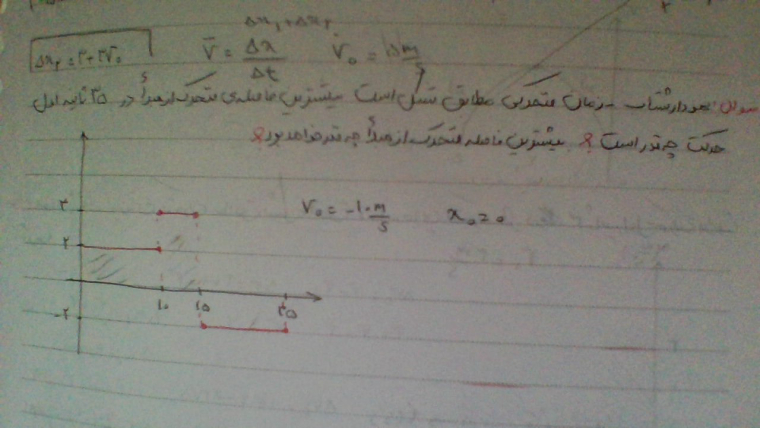 Δx₁ + Δx₂
Δx₂ = ۲ + ۲V₀ V̄ = Δx / Δt V₀ = ۱۵ m/s
سوال: نمودار شتاب - زمان متحرکی مطابق شکل است بیشترین فاصله‌ی متحرک از مبدأ در ۳۵ ثانیه اول
حرکت چه قدر است؟ بیشترین فاصله متحرک از مبدأ چه قدر خواهد بود؟
۳
V₀ = -۱۰ m/s x₀ = ۰
۲
۱۰ ۱۵ ۳۵
-۲